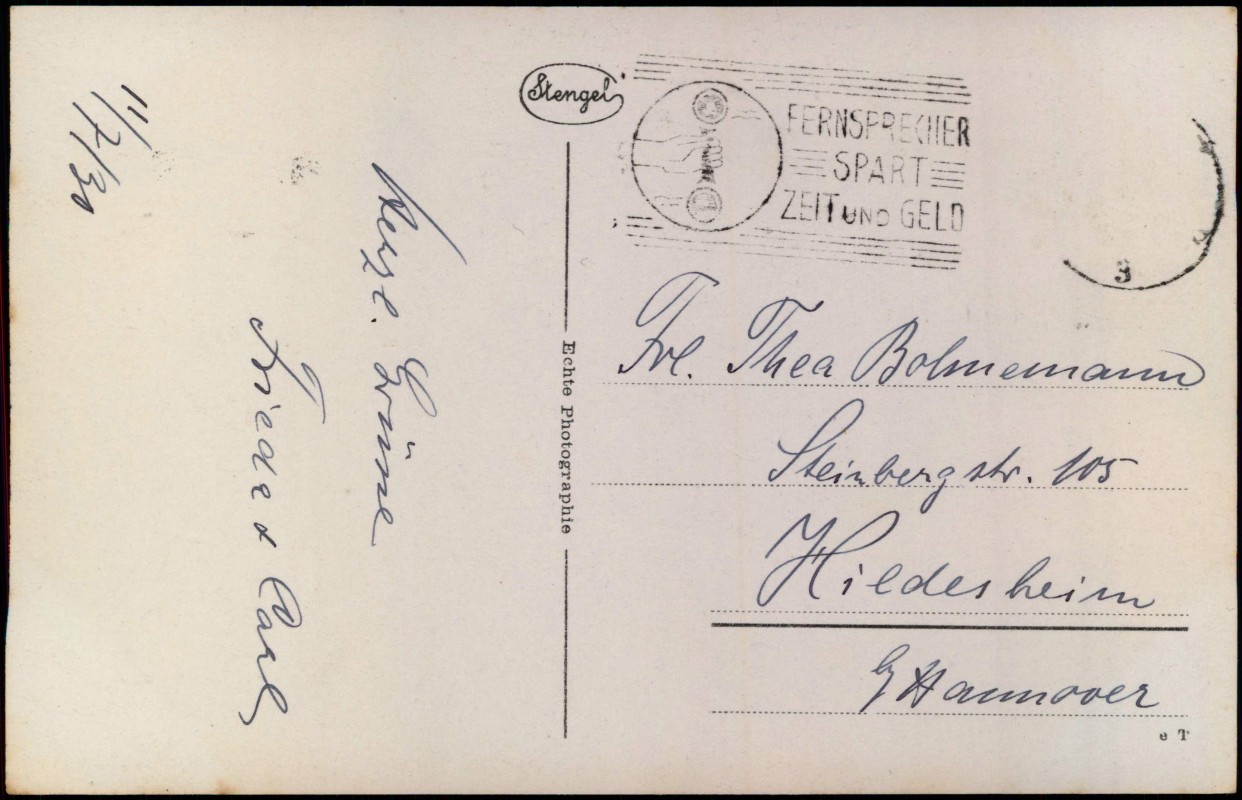 11/7/30
Herzl. Grüsse
Frieda & Carl
Stengel
Echte Photographie
FERNSPRECHER
SPART
ZEIT UND GELD
3
Frl. Thea Bolmemann
Steinbergstr. 105
Hildesheim
b/ Hannover
e T